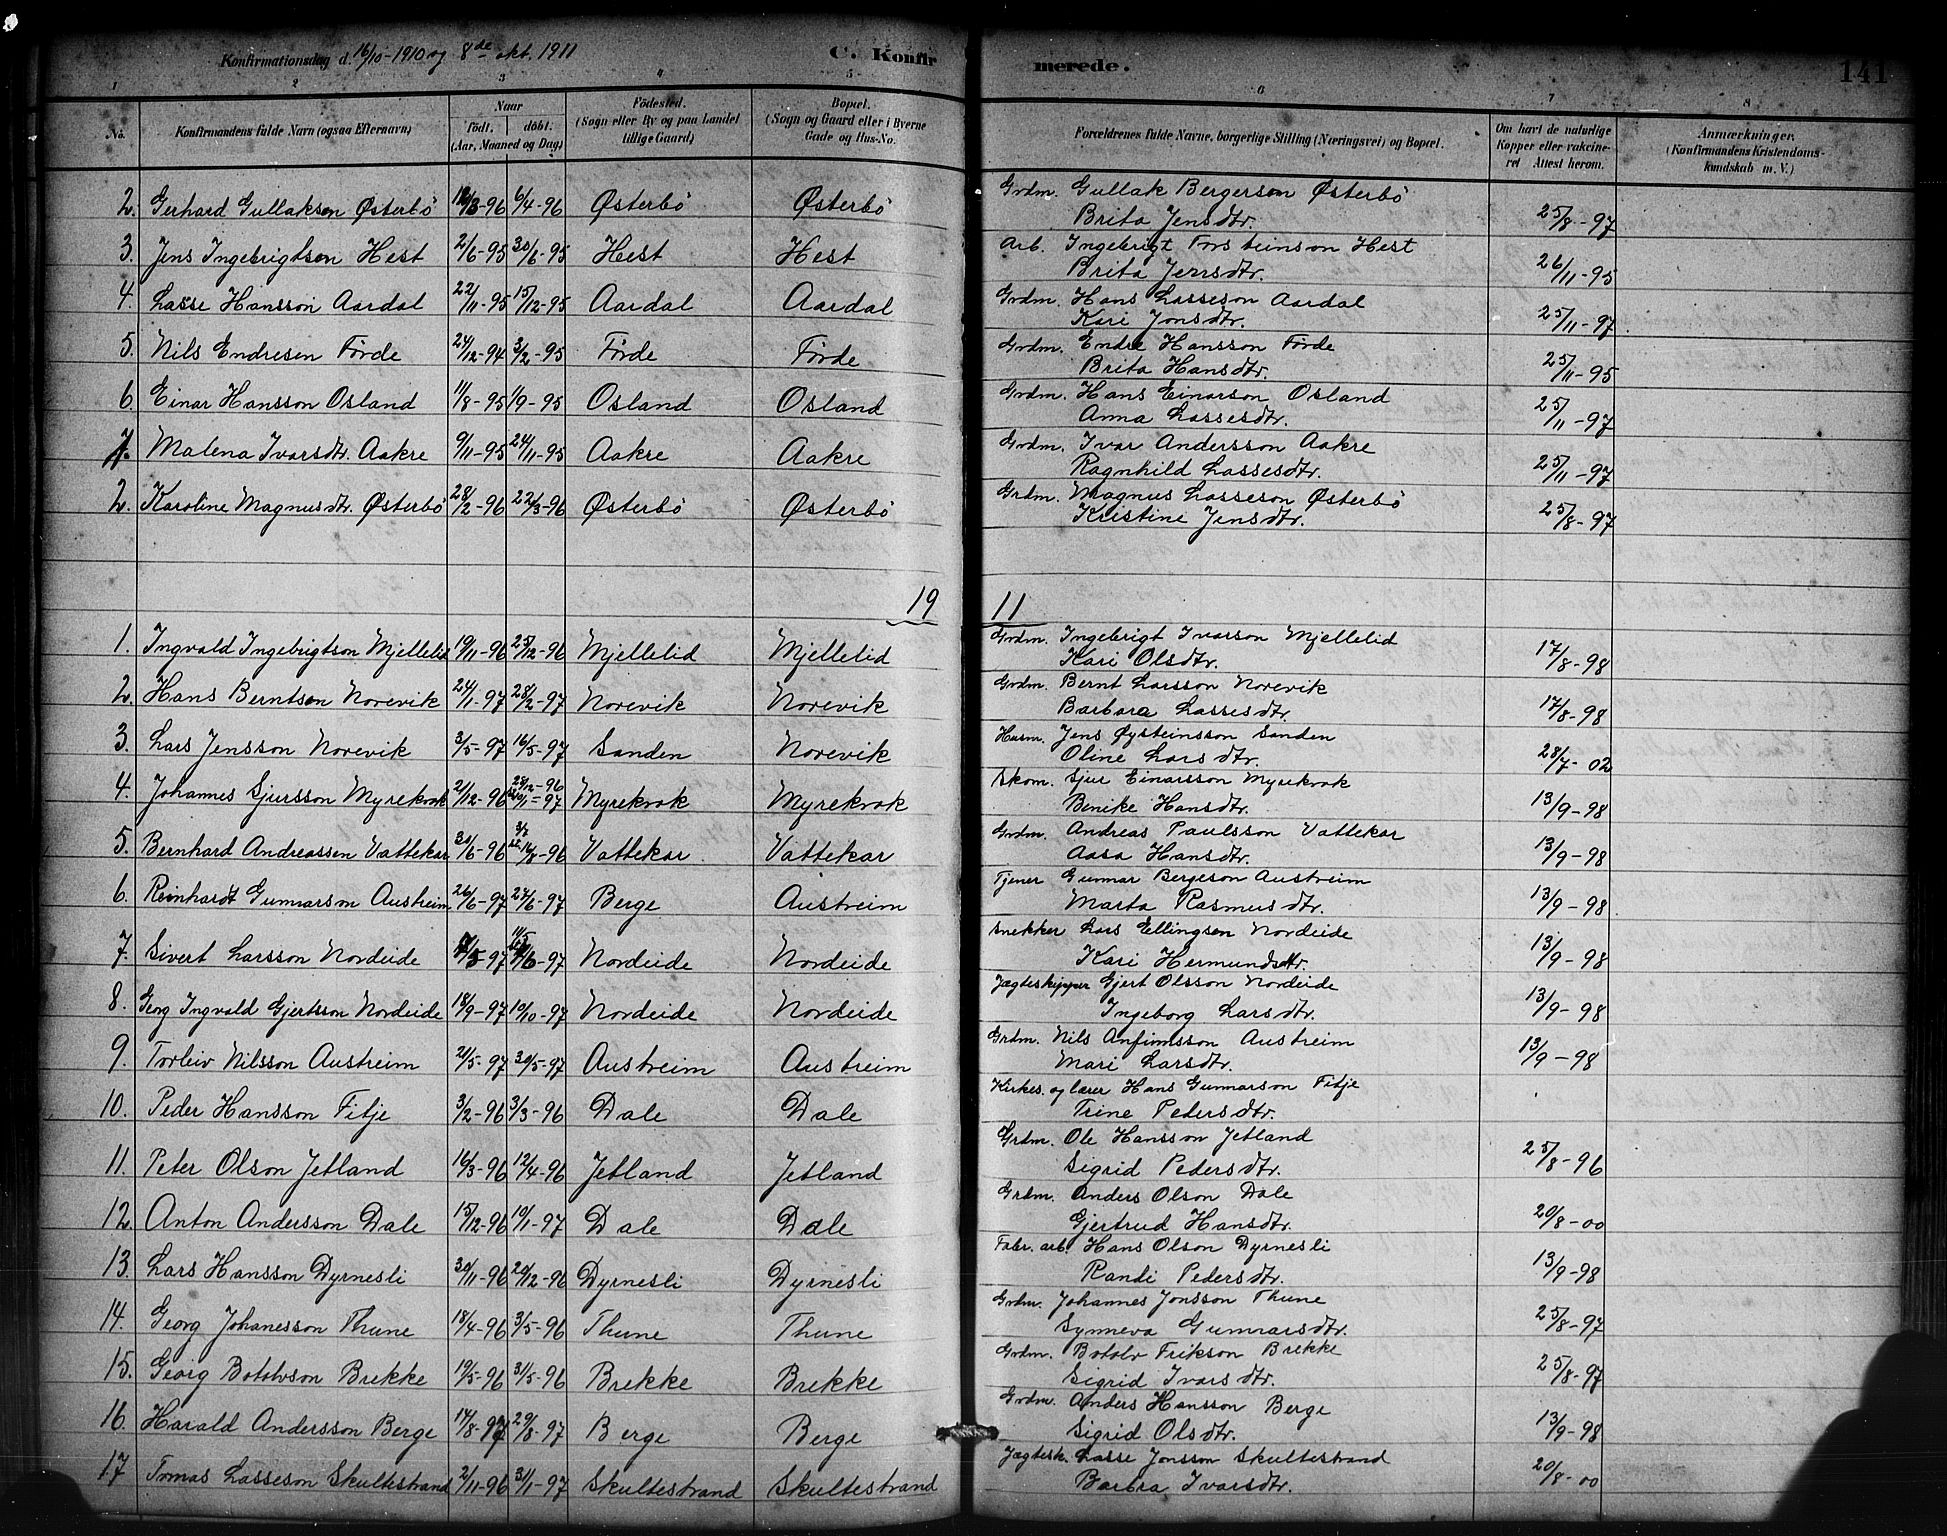 Konfirmationsdag d. 16/10-1910 og 8de okt. 1911
C. Konfirmerede.
141
1 2 3 4 5 6 7 8
No. Konfirmandens fulde Navn (ogsaa Efternavn) Naar födt. döbt. (Aar, Maaned og Dag) Födested. (Sogn eller By og paa Landet tillige Gaard) Bopæl. (Sogn og Gaard eller i Byerne Gade og Hus-No. Forældrenes fulde Navne, borgerlige Stilling (Næringsvei) og Bopæl. Om havt de naturlige Kopper eller vakcineret Attest herom. Anmærkninger. (Konfirmandens Kristendomskundskab m. V.)
2. Gerhard Gullaksen Østerbö /3-96 6/4-96 Østerbö Østerbö Grdm. Gullak Bergerson Østerbö
Brita Jensdtr. 25/8-97
3. Jens Ingebrigtson Hest 2/6-95 30/6-95 Hest Hest Arb. Ingebrigt Torsteinson Hest
Brita Jensdtr. 26/11-95
4. Lasse Hansson Aardal 22/11-95 15/12-95 Aardal Aardal Grdm. Hans Lasseson Aardal
Kari Jonsdtr. 25/11-97
5. Nils Endresen Förde 24/12-94 3/2-95 Förde Förde Grdm. Endre Hansson Förde
Brita Hansdtr. 25/11-95
6. Einar Hansson Osland 11/8-95 1/9-95 Osland Osland Grdm. Hans Einarson Osland
Anna Lassesdtr. 25/11-97
1. Malena Ivarsdtr. Aakre 9/11-95 24/11-95 Aakre Aakre Grdm. Ivar Andersson Aakre
Ragnhild Lassesdtr. 25/11-97
2. Karoline Magnusdtr. Østerbö 28/2-96 22/3-96 Østerbö Østerbö Grdm. Magnus Lasseson Østerbö
Kristine Jensdtr. 25/8-97
19 11
1. Ingvald Ingebrigtson Mjellelid 19/11-96 25/12-96 Mjellelid Mjellelid Grdm. Ingebrigt Ivarson Mjellelid
Kari Olsdtr. 17/8-98
2. Hans Berntson Norevik 24/1-97 28/2-97 Norevik Norevik Grdm. Bernt Larsson Norevik
Barbara Lassesdtr. 17/8-98
3. Lars Jensson Norevik 3/5-97 16/5-97 Sanden Norevik Husm. Jens Øysteinsson Sanden
Oline Larsdtr. 28/7-02
4. Johannes Sjursson Myrekrok 21/12-96 28/12-96 10/1-97 Myrekrok Myrekrok Skom. Sjur Einarsson Myrekrok
Benike Hansdtr. 13/9-98
5. Bernhard Andreassen Vattekar 30/6-96 3/7 16/8-96 Vattekar Vattekar Grdm. Andreas Paulsson Vattekar
Aasa Hansdtr. 13/9-98
6. Reinhardt Gunnarson Austreim 26/6-97 27/6-97 Berge Austreim Tjener Gunnar Bergeson Austreim
Marta Rasmusdtr. 13/9-98
7. Sivert Larsson Nordeide /5-97 11/5 /6-97 Nordeide Nordeide Snekker Lars Ellingsen Nordeide
Kari Hermundsdtr. 13/9-98
8. Georg Ingvald Gjertsson Nordeide 18/9-97 10/10-97 Nordeide Nordeide Jægteskipper Gjert Olsson Nordeide
Ingeborg Larsdtr. 13/9-98
9. Torleiv Nilsson Austreim 21/5-97 30/5-97 Austreim Austreim Grdm. Nils Anfinnsson Austreim
Mari Larsdtr. 13/9-98
10. Peder Hansson Fitje 3/2-96 3/3-96 Dale Dale Kirkes. og lærer Hans Gunnarson Fitje
Trine Pedersdtr.
11. Peter Olson Jetland 16/3-96 12/4-96 Jetland Jetland Grdm. Ole Hansson Jetland
Sigrid Pedersdtr. 25/8-96
12. Anton Andersson Dale 15/12-96 10/1-97 Dale Dale Grdm. Anders Olson Dale
Gjertrud Hansdtr. 20/8-00
13. Lars Hansson Dyrnesli 30/11-96 20/12-96 Dyrnesli Dyrnesli Fabr. arb. Hans Olson Dyrnesli
Randi Pedersdtr. 13/9-98
14. Georg Johanesson Thune 18/4-96 3/5-96 Thune Thune Grdm. Johannes Jonsson Thune
Synneva Gunnarsdtr. 25/8-97
15. Georg Botolvson Brekke 19/5-96 31/5-96 Brekke Brekke Grdm. Botolv Erikson Brekke
Sigrid Ivarsdtr. 25/8-97
16. Harald Andersson Berge 17/8-97 29/8-97 Berge Berge Grdm. Anders Hansson Berge
Sigrid Olsdtr. 13/9-98
17 Tomas Lasseson Skultestrand 2/11-96 31/1-97 Skultestrand Skultestrand Jægtesk. Lasse Jonsson Skultestrand
Barbra Ivarsdtr. 20/8-00